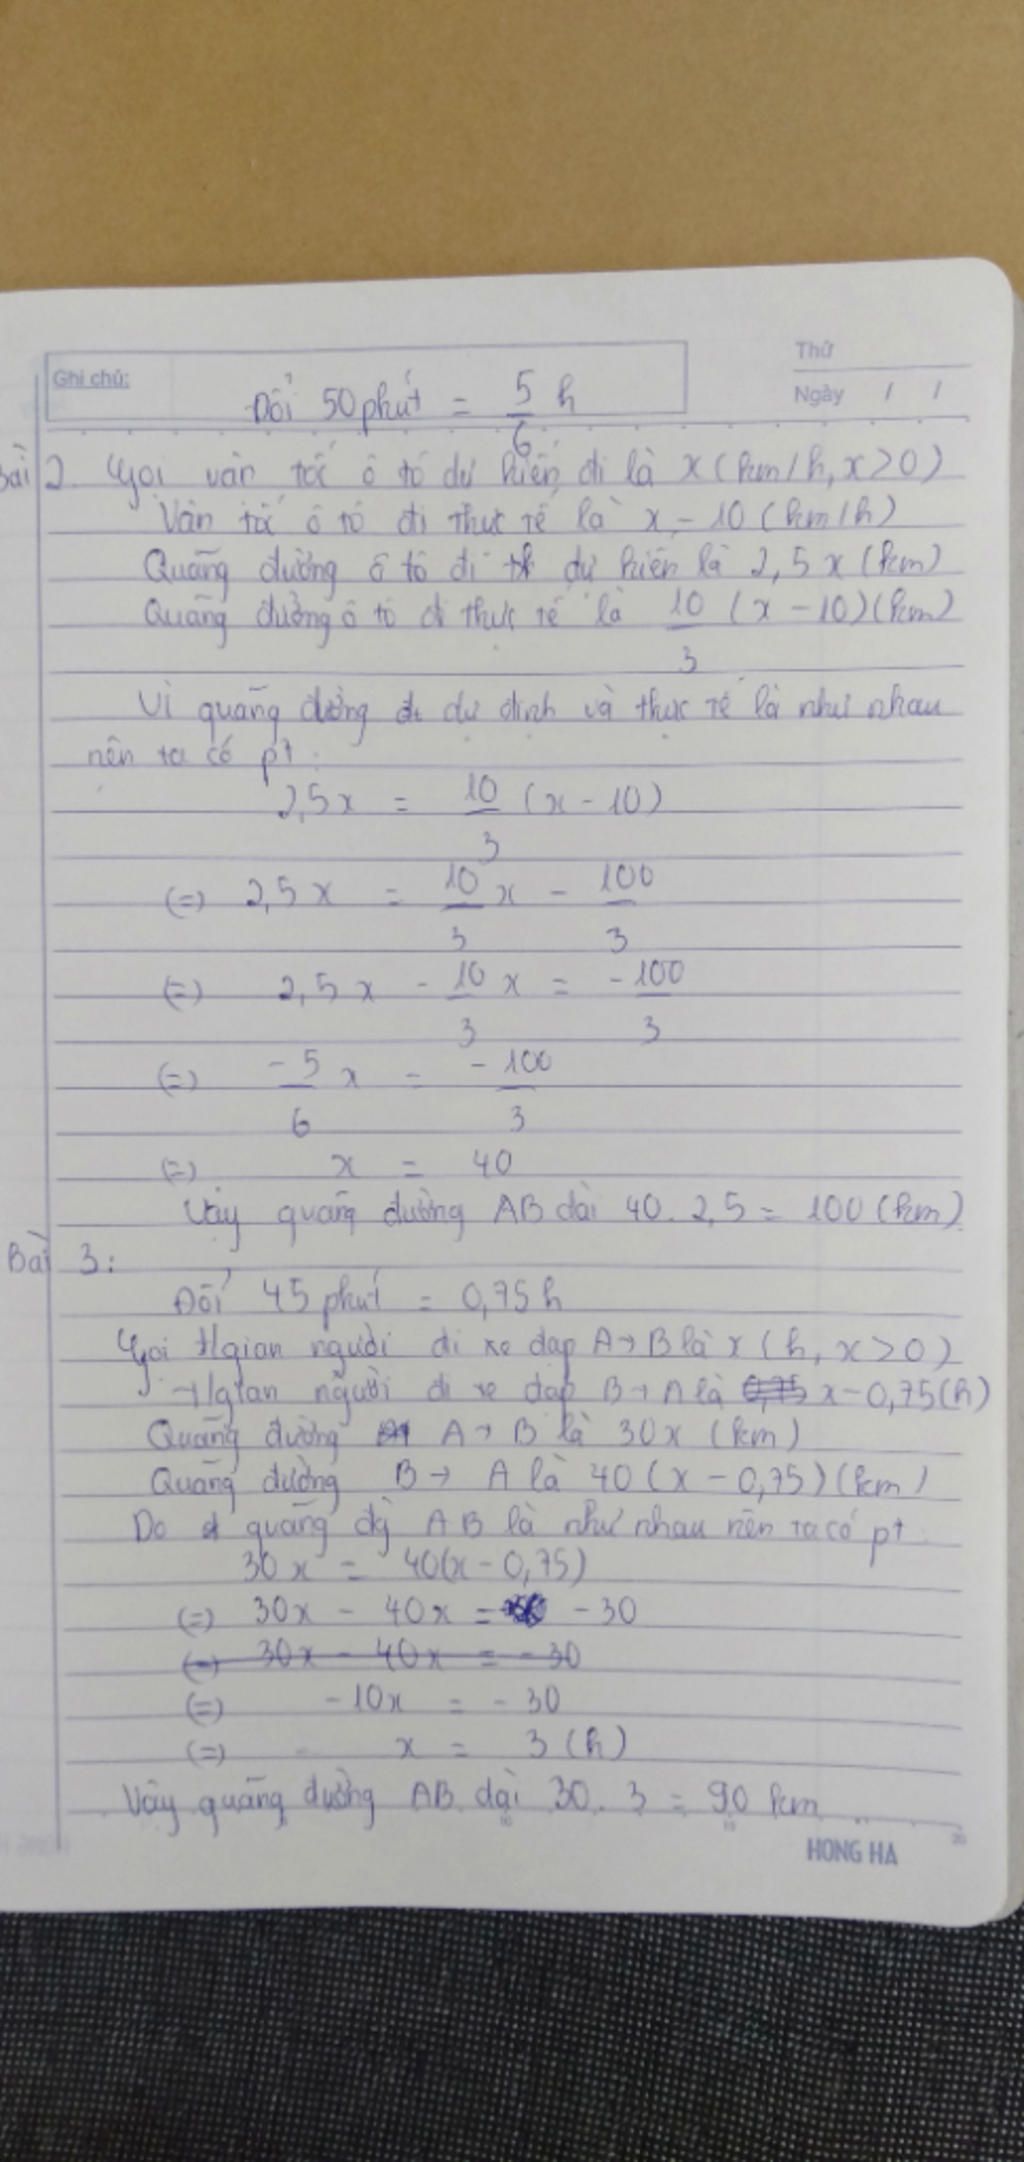 Ghi chú:
Thứ
Ngày / /
Đổi 50 phút = 5/6 h
Bài 2. Gọi vận tốc ô tô dự kiến đi là x (km/h, x>0)
Vận tốc ô tô đi thực tế là x - 10 (km/h)
Quãng đường ô tô đi dự kiến là 2,5x (km)
Quãng đường ô tô đi thực tế là 10/3 (x - 10)(km)
Vì quãng đường dự định và thực tế là như nhau
nên ta có pt:
2,5x = 10/3 (x - 10)
(=) 2,5x = 10/3 x - 100/3
(=) 2,5x - 10/3 x = -100/3
(=) -5/6 x = -100/3
(=) x = 40
Vậy quãng đường AB dài 40. 2,5 = 100 (km)
Bài 3:
Đổi 45 phút = 0,75h
Gọi tgian người đi xe đạp A→B là x (h, x>0)
Tgian người đi xe đạp B→A là x-0,75(h)
Quãng đường A→B là 30x (km)
Quãng đường B→A là 40(x-0,75)(km)
Do quãng đg AB là như nhau nên ta có pt
30x = 40(x-0,75)
(=) 30x - 40x = -30
(=) 30x - 40x = -30
(=) -10x = -30
(=) x = 3 (h)
Vậy quãng đường AB dài 30. 3 = 90 km
HONG HA